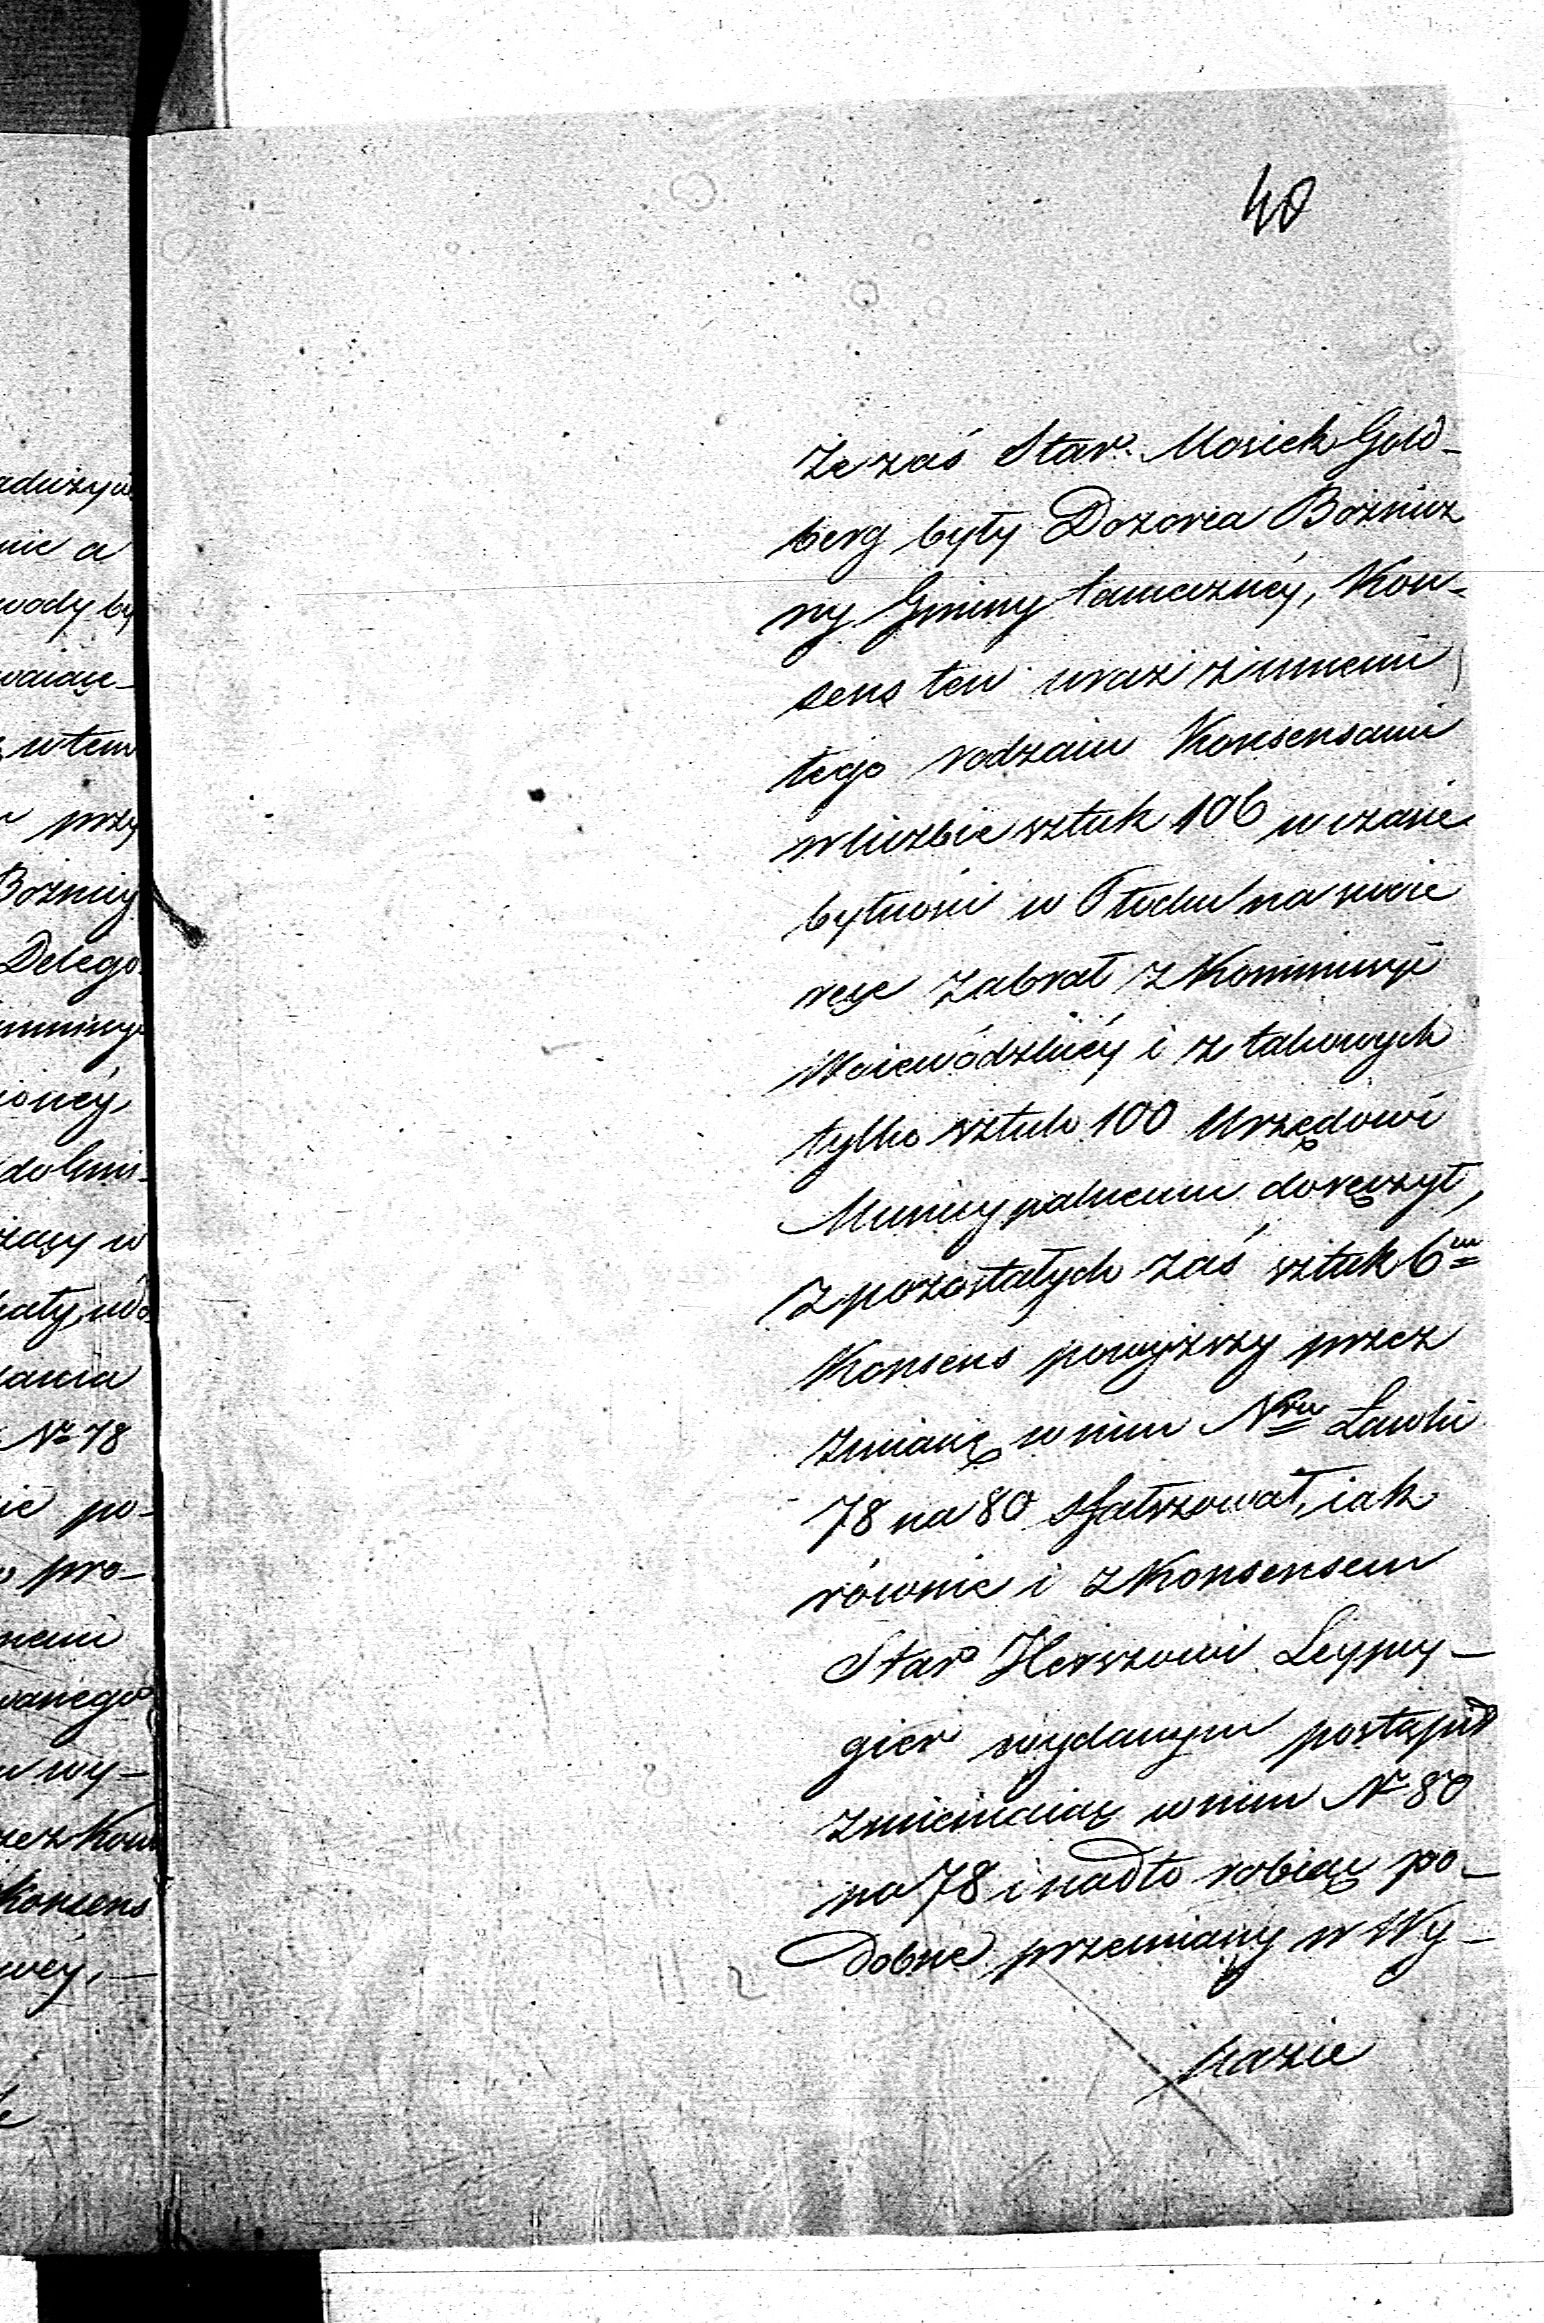 40
Że zaś Star. Mosiek Gold-
berg były Dozorca Bożnicz
ny Gminy tameczney, Kon-
sens ten wraz z innemi
tego rodzaiu Konsensami
w liczbie sztuk 106 w czasie
bytności w Płocku na swoie
ręce zabrał z Kommissyi
Woiewódzkiéy i z takowych
tylko sztuk 100 Urzędowi
Municypalnemu doręczył,
z pozostałych zaś sztuk 6m
Konsens powyższy przez
zmianę w nim Nru Ławki
78 na 80 sfałszował, iak
równie i z Konsensem
Star Herszowi Leypcy-
gier wydanym postąpił
zmieniaiąc w nim No 80
na 78 i nadto robiąc po-
dobne przemiany w Wy-
kazie
adużyci
nie a
wody by
w tem
przy
Bożnicy
Delego
ionéy
żący w
No 78
ié po-
pro-
wanego
wy-
Konsens